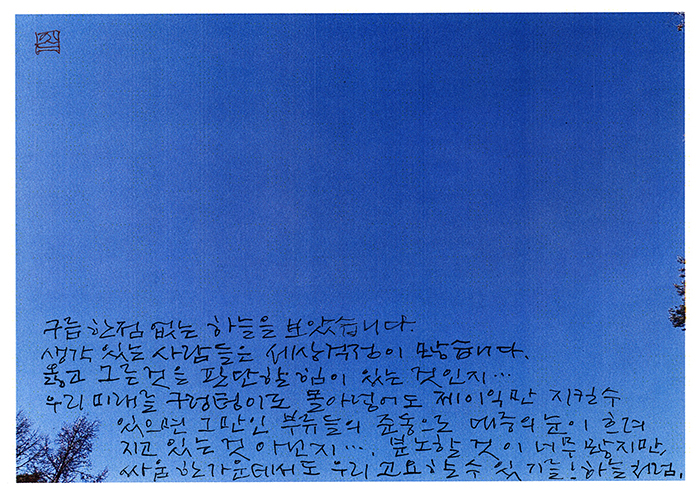 구름 한점 없는 하늘을 보았습니다.
생각 있는 사람들은 세상걱정이 많습니다.
옳고 그른것을 판단할 힘이 있는 것인지...
우리 미래를 구렁텅이로 몰아넣어도 제이익만 지킬수
있으면 그만인 부류들의 준동으로 대중의 눈이 흐려
지고 있는 것 아닌지.... 분노할 것이 너무 많지만,
싸움 한가운데서도 우리 고요할 수 있기를! 하늘처럼.